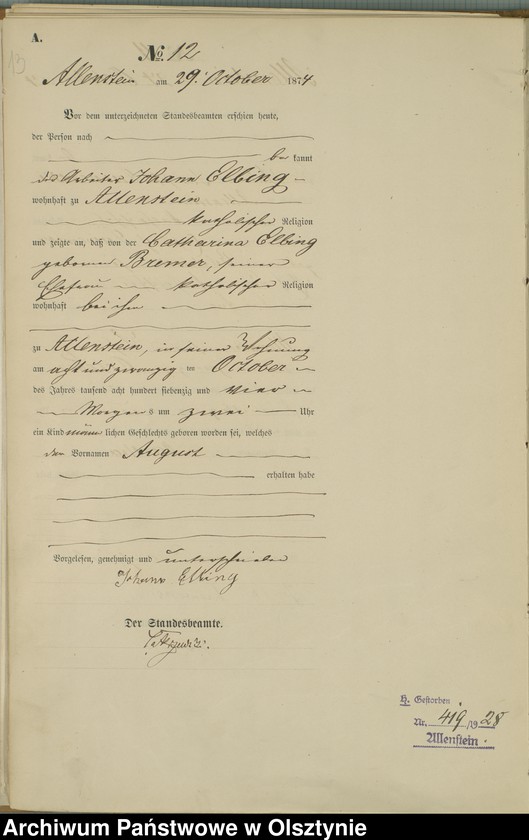 A.
15
No. 12
Allenstein am 29. October 1874
Vor dem unterzeichneten Standesbeamten erschien heute,
der Person nach
be kannt
der Arbeiter Johann Elbing
wohnhaft zu Allenstein
katholischer Religion
und zeigte an, daß von der Catharina Elbing
geborene Bremer, seiner
Ehefrau katholischer Religion
wohnhaft bei ihm
zu Allenstein, in seiner Wohnung
am acht und zwanzig ten October
des Jahres tausend acht hundert siebenzig und vier
Morgens um zwei Uhr
ein Kind männlichen Geschlechts geboren worden sei, welches
den Vornamen August
erhalten habe
Vorgelesen, genehmigt und unterschrieben
Johann Elbing
Der Standesbeamte.
H. Gestorben
Nr. 419 /19 28
Allenstein
Archiwum Państwowe w Olsztynie